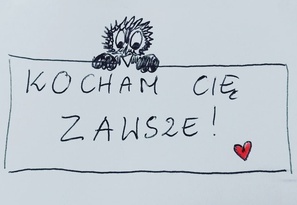 KOCHAM CIĘ
ZAWSZE!